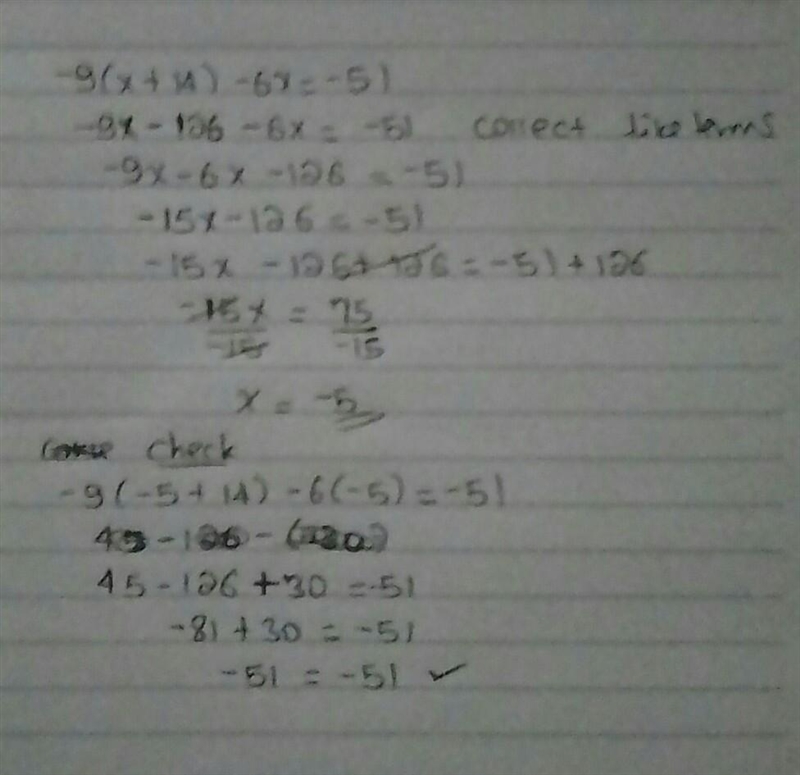 -9(x+14) -6x = -51
-9x - 126 - 6x = -51 correct like terms
-9x - 6x - 126 = -51
-15x - 126 = -51
-15x - 126 + 126 = -51 + 126
-15x = 75
-15 -15
x = -5
check
-9(-5+14) -6(-5) = -51
45 - 126 - (
45 - 126 + 30 = -51
-81 + 30 = -51
-51 = -51 ✓